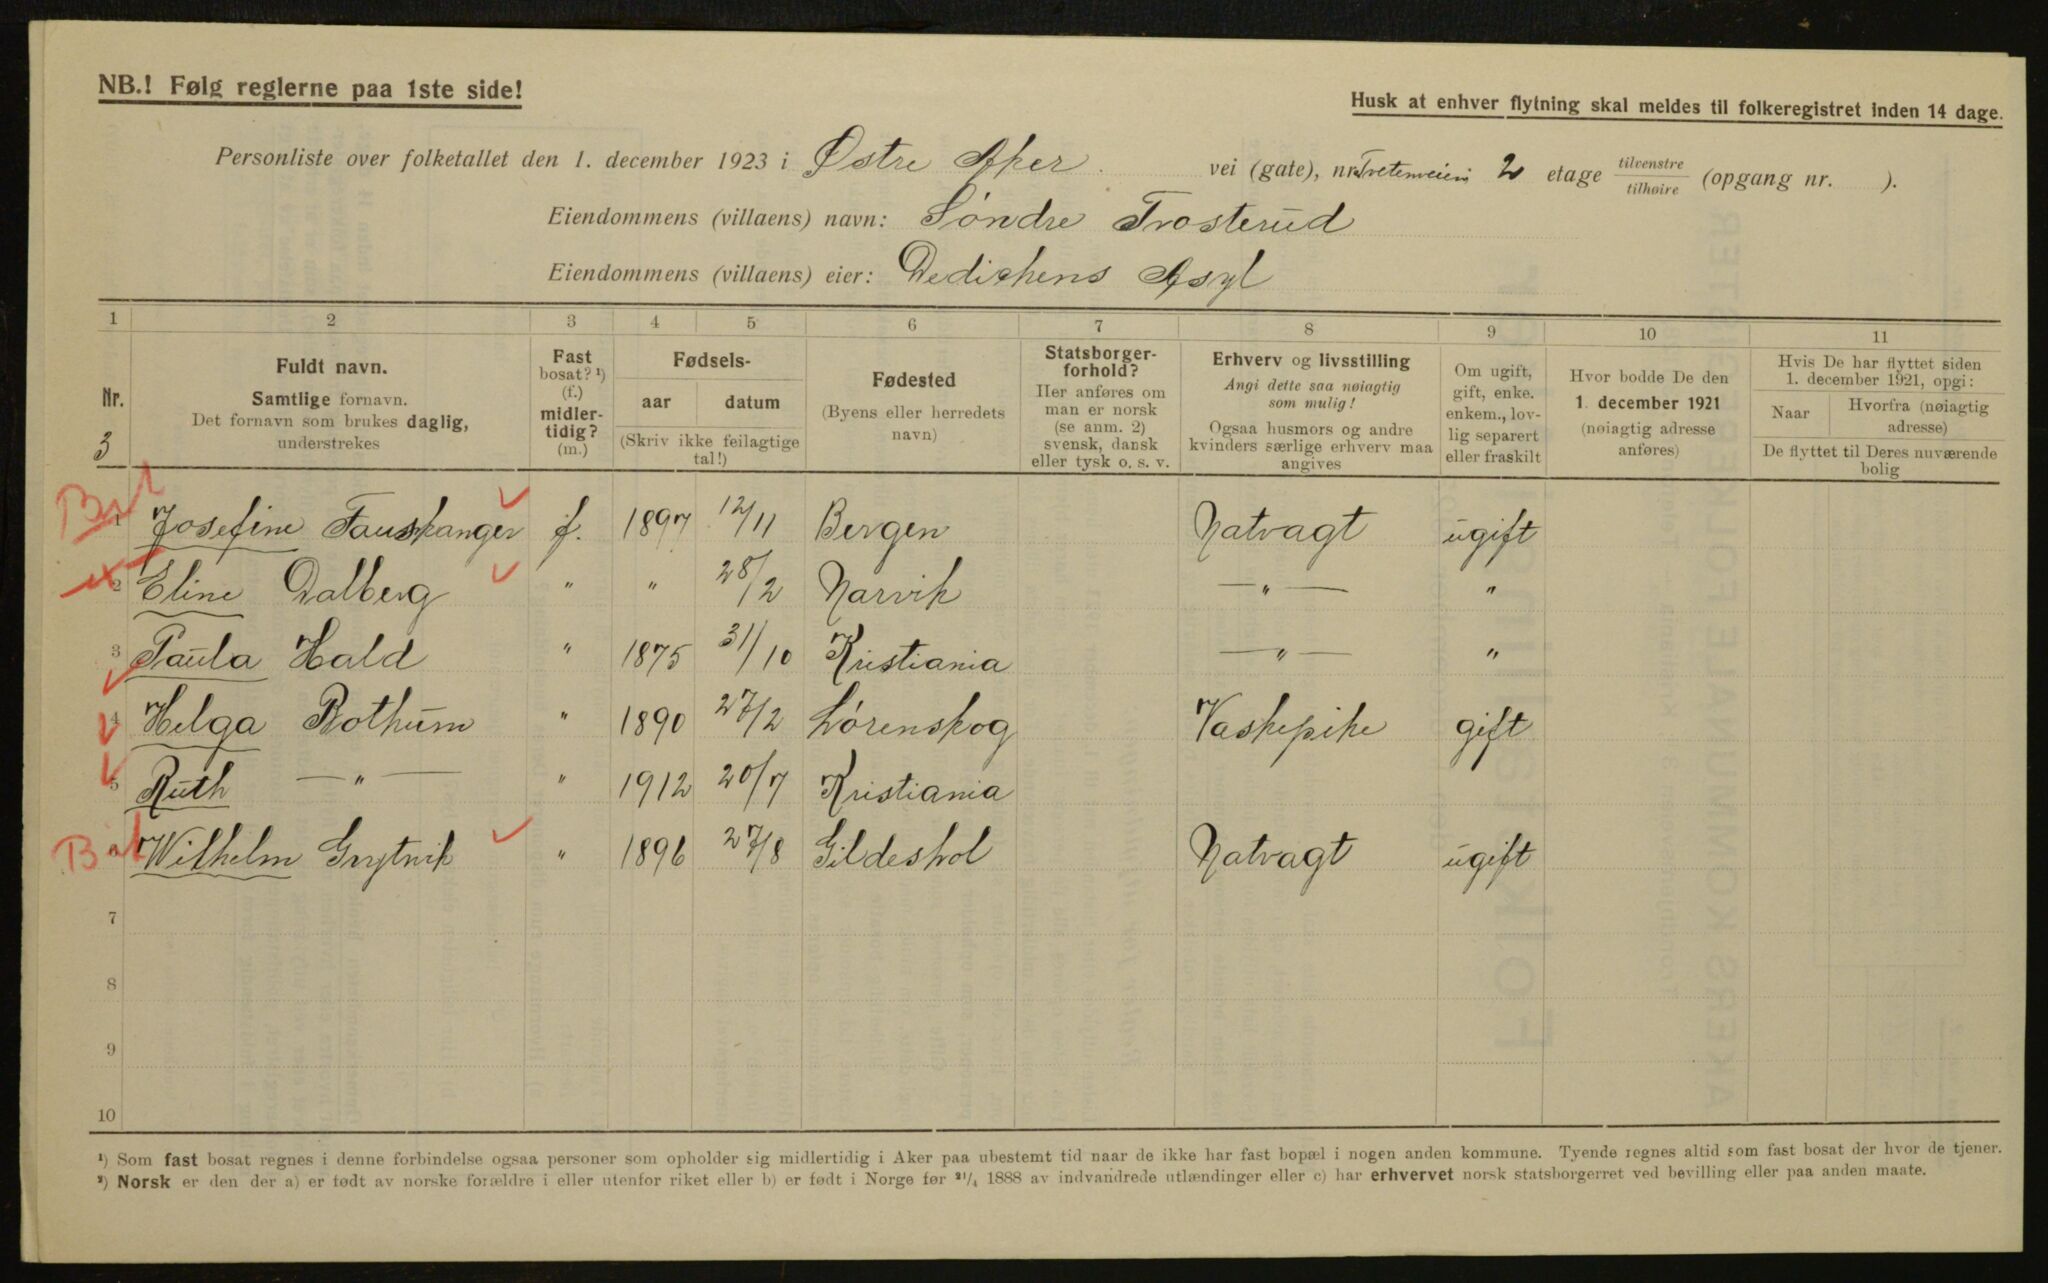 NB.! Følg reglerne paa 1ste side!
Husk at enhver flytning skal meldes til folkeregistret inden 14 dage.
Personliste over folketallet den 1. december 1923 i Østre Aker vei (gate), nr. Tvetenveien 2 etage tilvenstre tilhøire (opgang nr. ).
Eiendommens (villaens) navn: Søndre Trosterud
Eiendommens (villaens) eier: Dedichens Asyl
1 2 3 4 5 6 7 8 9 10 11
Nr. 3
Fuldt navn.
Samtlige fornavn.
Det fornavn som brukes daglig,
understrekes
Fast
bosat? ¹)
(f.)
midler-
tidig?
(m.)
Fødsels-
aar datum
(Skriv ikke feilagtige
tal!)
Fødested
(Byens eller herredets
navn)
Statsborger-
forhold?
Her anføres om
man er norsk
(se anm. 2)
svensk, dansk
eller tysk o. s. v.
Erhverv og livsstilling
Angi dette saa nøiagtig
som mulig!
Ogsaa husmors og andre
kvinders særlige erhverv maa
angives
Om ugift,
gift, enke.
enkem., lov-
lig separert
eller fraskilt
Hvor bodde De den
1. december 1921
(nøiagtig adresse
anføres)
Hvis De har flyttet siden
1. december 1921, opgi:
Naar Hvorfra (nøiagtig
adresse)
De flyttet til Deres nuværende
bolig
1 Josefine Fauskanger f. 1897 12/11 Bergen Natvagt ugift
2 Eline Dalberg " " 28/2 Narvik —"— "
3 Paula Hald " 1875 31/10 Kristiania —"— "
4 Helga Bothum " 1890 27/2 Lørenskog Vaskepike gift
5 Ruth —"— " 1912 20/7 Kristiania
6 Wilhelm Grytvik " 1896 27/8 Gildeskol Natvagt ugift
7
8
9
10
¹) Som fast bosat regnes i denne forbindelse ogsaa personer som opholder sig midlertidig i Aker paa ubestemt tid naar de ikke har fast bopæl i nogen anden kommune. Tyende regnes altid som fast bosat der hvor de tjener.
²) Norsk er den der a) er født av norske forældre i eller utenfor riket eller b) er født i Norge før 21/4 1888 av indvandrede utlændinger eller c) har erhvervet norsk statsborgerret ved bevilling eller paa anden maate.